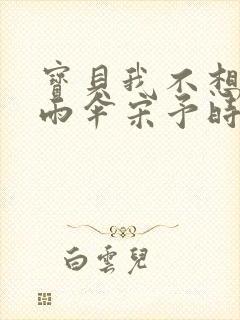 寶貝我不想
雨傘宋予時
白雲兒